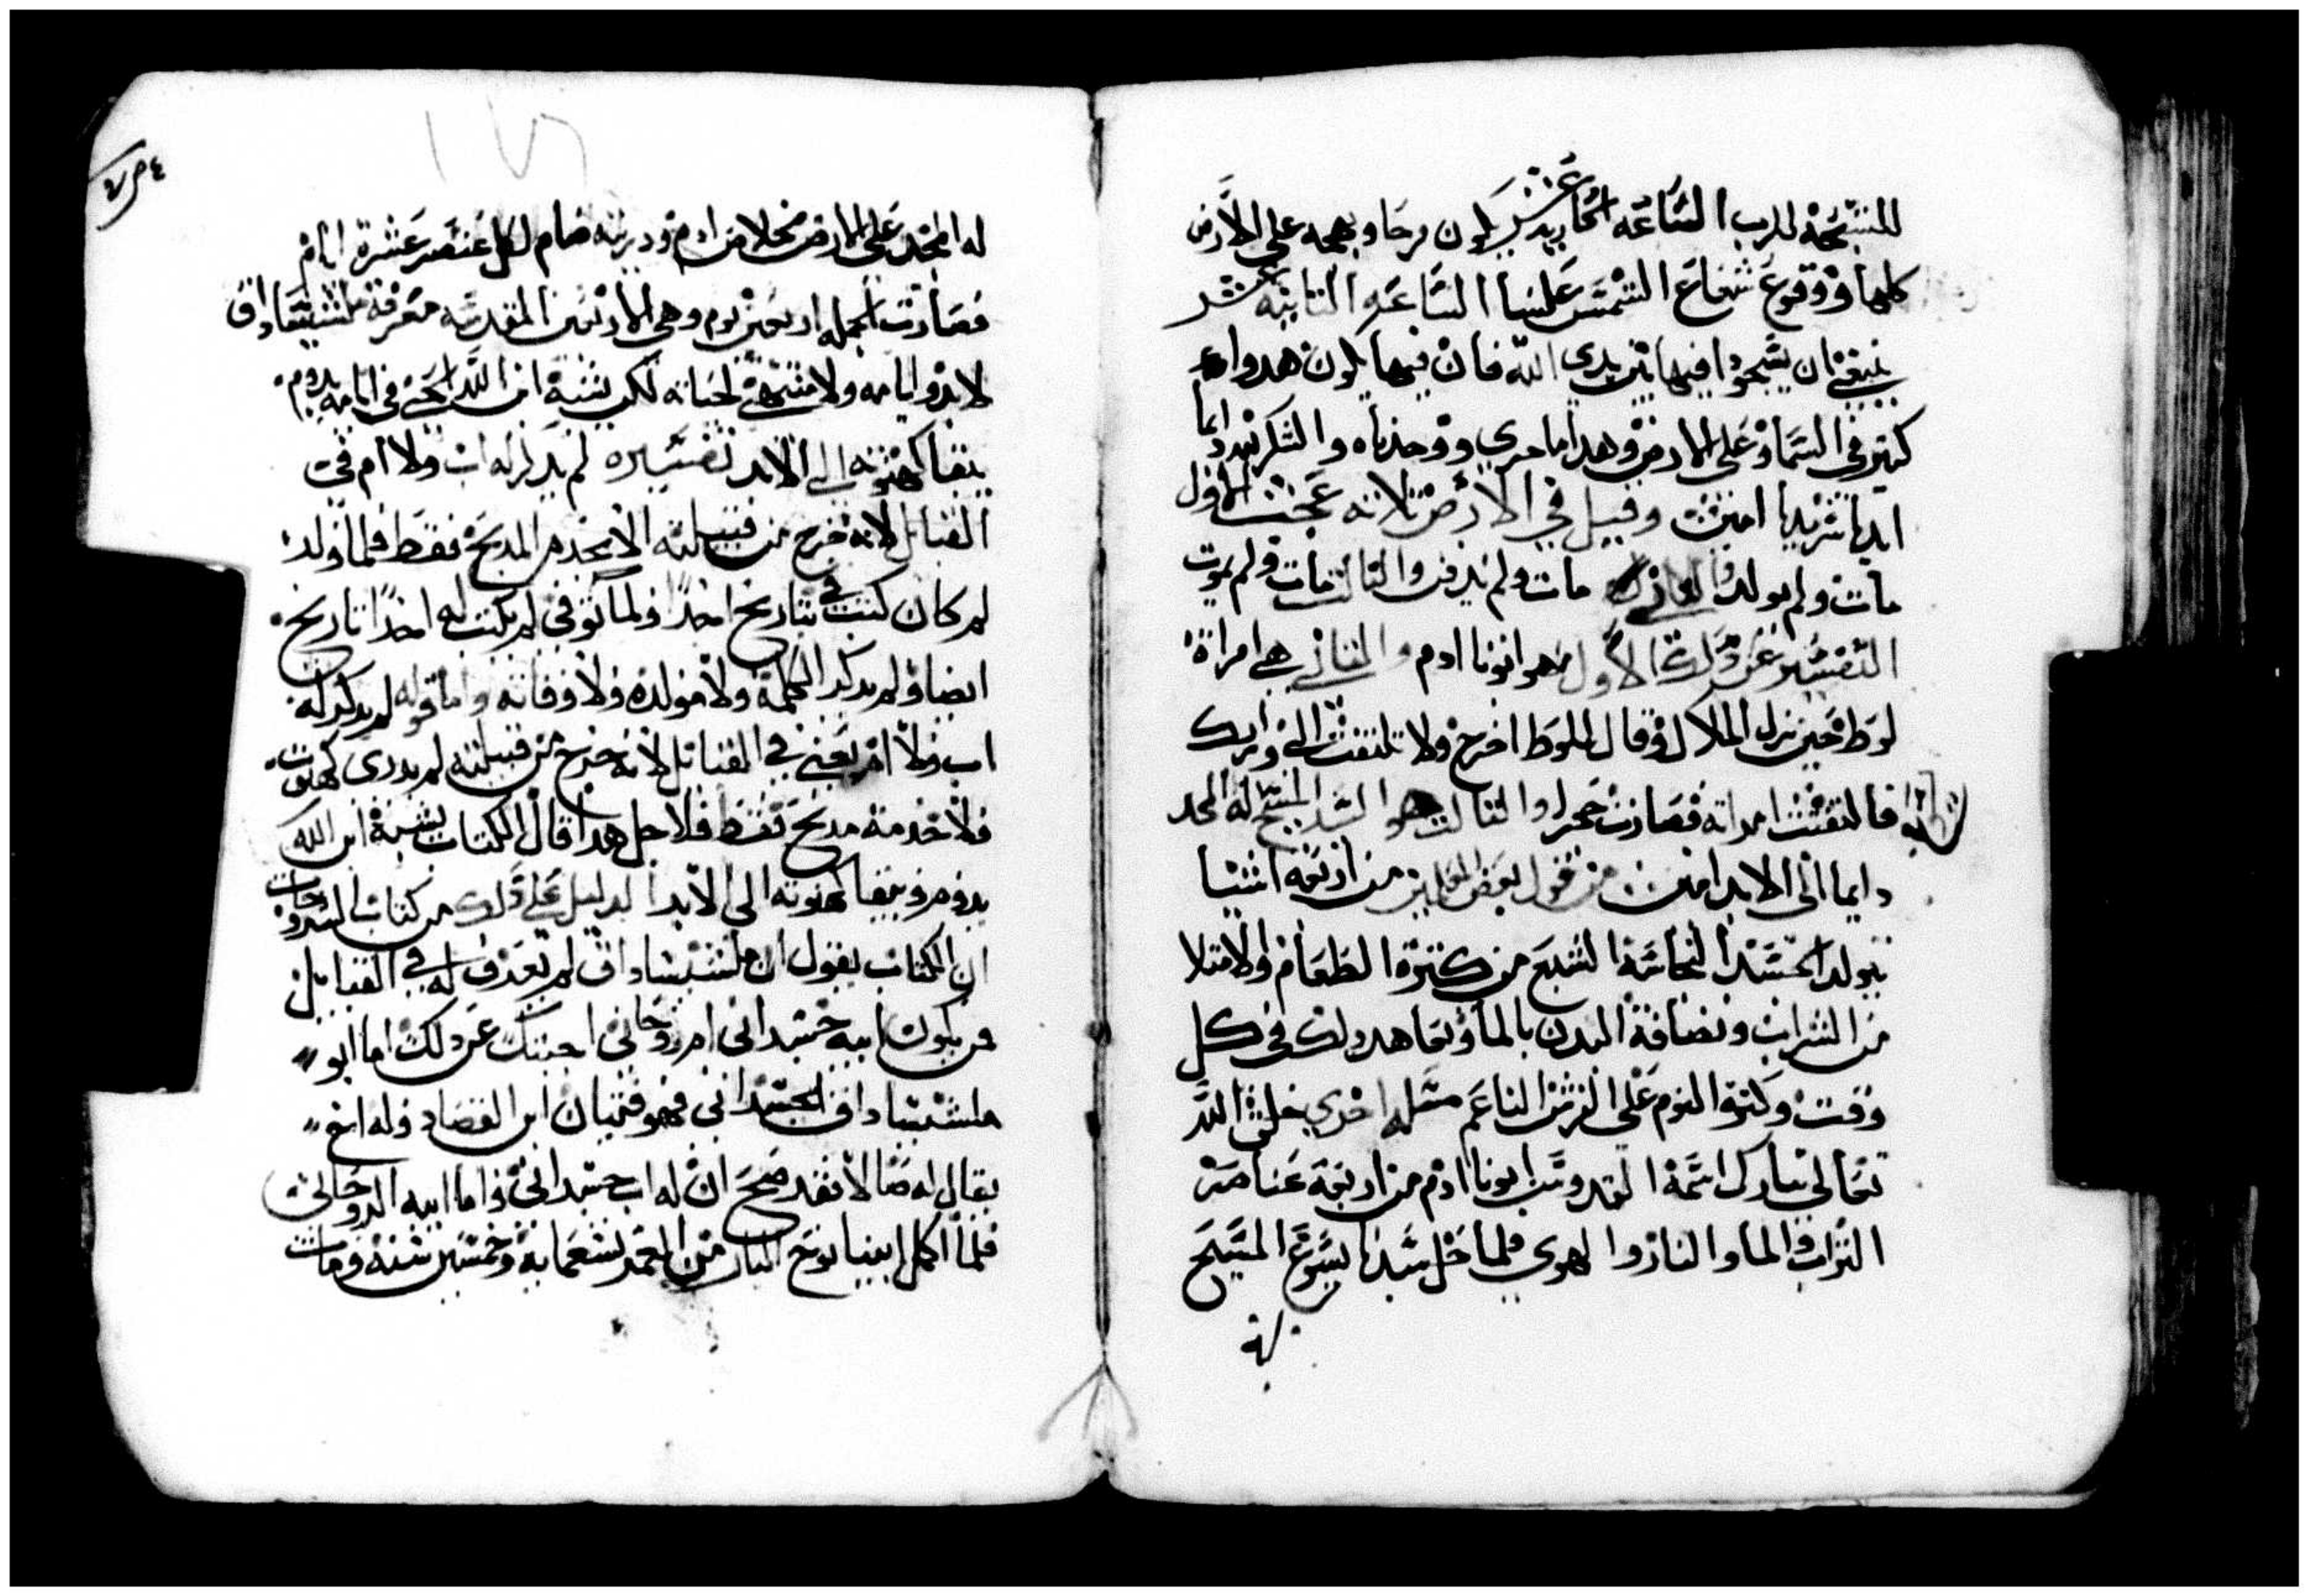 المسبحة للرب الساعه الحاديه عشر يكون فرحا وبهجه على الارض
كلها ووقوع شعاع الشمس علينا الساعه الثانيه عشر
ينبغي ان يسجدوا فيها بين يدي الله فان فيها يكون هدوا
كثير في السما وعلى الارض وهدا ما جري ووجدناه والشكر لله دايما
ابديا سرمديا امين وقيل في الارض ثلاثه عجب الاول
مات ولم يولد والثاني مات ولم يدفن والثالث مات ولم يموت
التفسير عن دلك الاول هو ابونا ادم والثاني هي امراة
لوط حين نزل الملاك وقال للوط اخرج ولا تلتفت الي ورايك
فالتفتت امراته فصارت حجرا والثالث هو السيد المسيح له المجد
دايما الى الابد امين من قول بعض المعلمين من اربعه اشيا
يتولد الجسد النجاسة الشبع من كثرة الطعام والامتلا
من الشراب ونضافة البدن بالما وتعاهد دلك في كل
وقت وكثرة النوم على الفرش الناعم مسله اخري خلق الله
تعالى تبارك اسمة القدوس ابونا ادم من اربعة عناصر
التراب والما والنار والهوي فلما حل سيدنا يسوع المسيح
له المجد على الارض مخلا من ادم ودريته صام لكل عنصر عشرة ايام
فصارت الجمله اربعين يوم وهي الاربعين المقدسه معرفة ملشيساداق
لا بدو ايامه ولا منتهي لحياته لكن بشبة ابن الله الحي في ايامه يدوم
يبقا كهنوته الى الابد تفسيره لم يدكر له اب ولا ام في
القبايل لانه خرج من قبيلته الا يخدم المدبح فقط فلما ولد
لم كان كتب في تاريخ احدا ولما توفي لم يكتب له احدا تاريخ
ايضا ولم يدكر الحكمة ولا مولده ولا وفاته واما قوله لم يدكر له
اب ولا ام يعني في القبايل لانه خرج من قبيلته لم يدري كهنوت
ولا خدمة مدبح فقط فلاجل هدا قال الكتاب بشبة ابن الله
يدوم ويبقا كهنوته الى الابد الدليل علي دلك من كتاب
ان الكتاب يقول ان ملشيساداق لم يعرف له في القبايل
من يكون ابيه جسداني ام روحاني اجبتك عن دلك اما ابو
ملشيساداق الجسداني فهو قينان ابن الفصاد وله اخ
يقال له صالا فقد صح ان له اب جسداني واما ابيه الروحاني
فلما اكمل ابينا نوح البار من العمر تسعمايه وخمسين سنة ومات